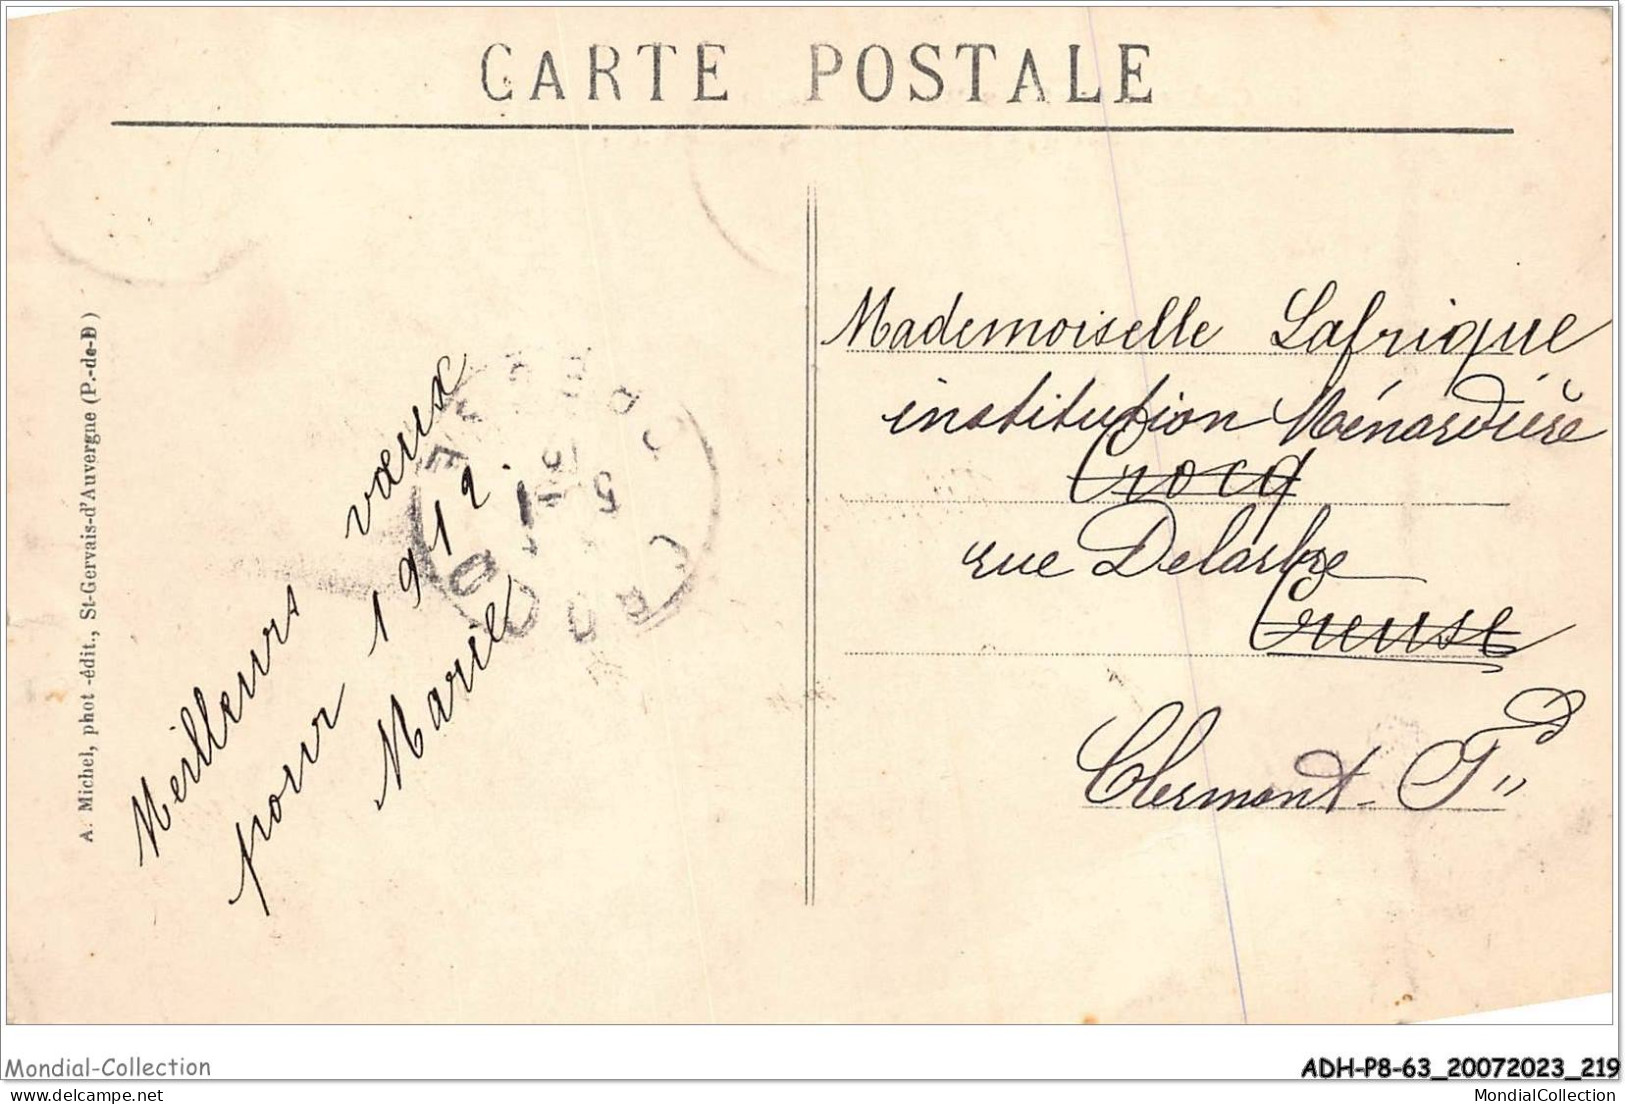 CARTE POSTALE
A. Michel, phot-édit., St-Gervais-d'Auvergne (P.-de-D)
Meilleurs vœux
pour 1912.
Marie
Mademoiselle Lafrique
institution Ménardière
Crocq
rue Delarbre
Creuse
Clermont-Fd
Mondial-Collection
ADH-P8-63_20072023_219
www.delcampe.net
MondialCollection